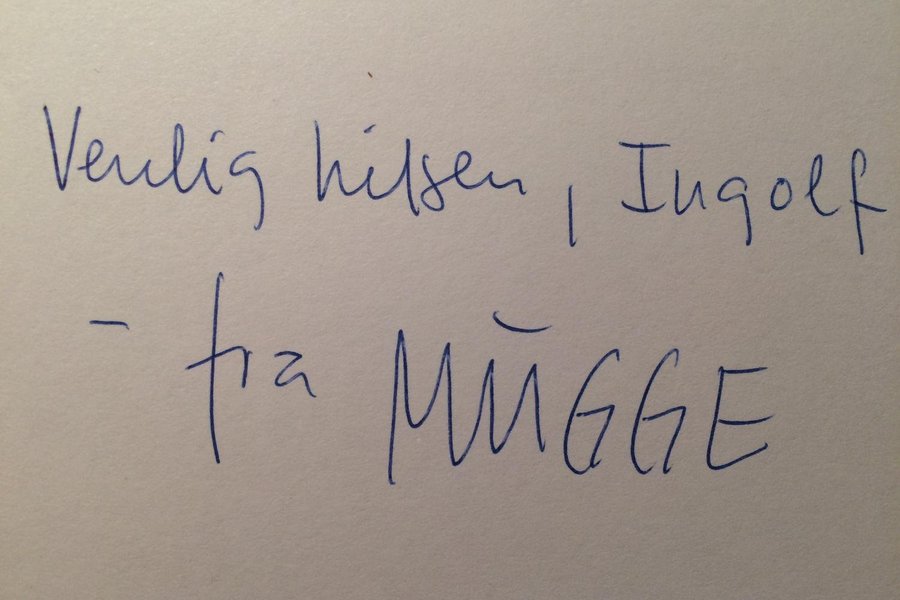 Venlig hilsen, Ingolf
- fra MŬGGE